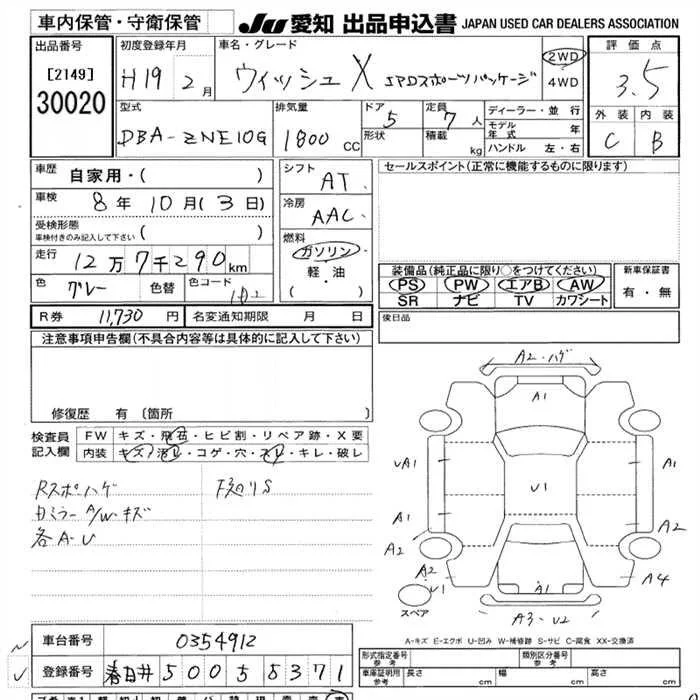 車内保管・守衛保管 JU 愛知 出品申込書 JAPAN USED CAR DEALERS ASSOCIATION
出品番号 [2149] 30020
初度登録年月 H19 2月
車名・グレード ウィッシュ X SPDスポーツパッケージ
2WD
4WD
評価点 3.5
外装 内装
C B
型式 DBA-ZNE10G
排気量 1800 cc
ドア 5 形状
定員 7 人 積載 kg
ディーラー・並行
モデル年式 年
ハンドル 左・右
車歴 自家用・( )
車検 8年 10月 (3日)
受検形態 車検付きのみ記入して下さい ( )
走行 12万7千290km
色 グレー 色替 色コード
シフト AT
冷房 AAC
燃料 ガソリン・軽・油 ( )
R券 11,730 円 名変通知期限 月 日
セールスポイント(正常に機能するものに限ります)
装備品(純正品に限り○をつけてください)
PS PW エアB AW
SR ナビ TV カワシート
新車保証書 有・無
後日品
注意事項申告欄(不具合内容等は具体的に記入して下さい)
修復歴 有(箇所
検査員記入欄
FW キズ・飛石・ヒビ割・リペア跡・X要
内装 キズ・汚レ・コゲ・穴・スレ・キレ・破レ
Rスポハゲ
ミラー A/W・キズ
各A・U
A2・ハゲ
A1
UA1
A1
U1
A1
A1
A2
A2
A2
U1
A4
A1
A3・U2
スペア
A-キズ E-エクボ U-凹み W-補修跡 S-サビ C-腐食 XX-交換済
車台番号 0354912
登録番号 春日井 500 5 8371
形式指定番号 参考
類別区分番号 参考
車庫証明用 参考 長さ cm 幅 cm 高さ cm